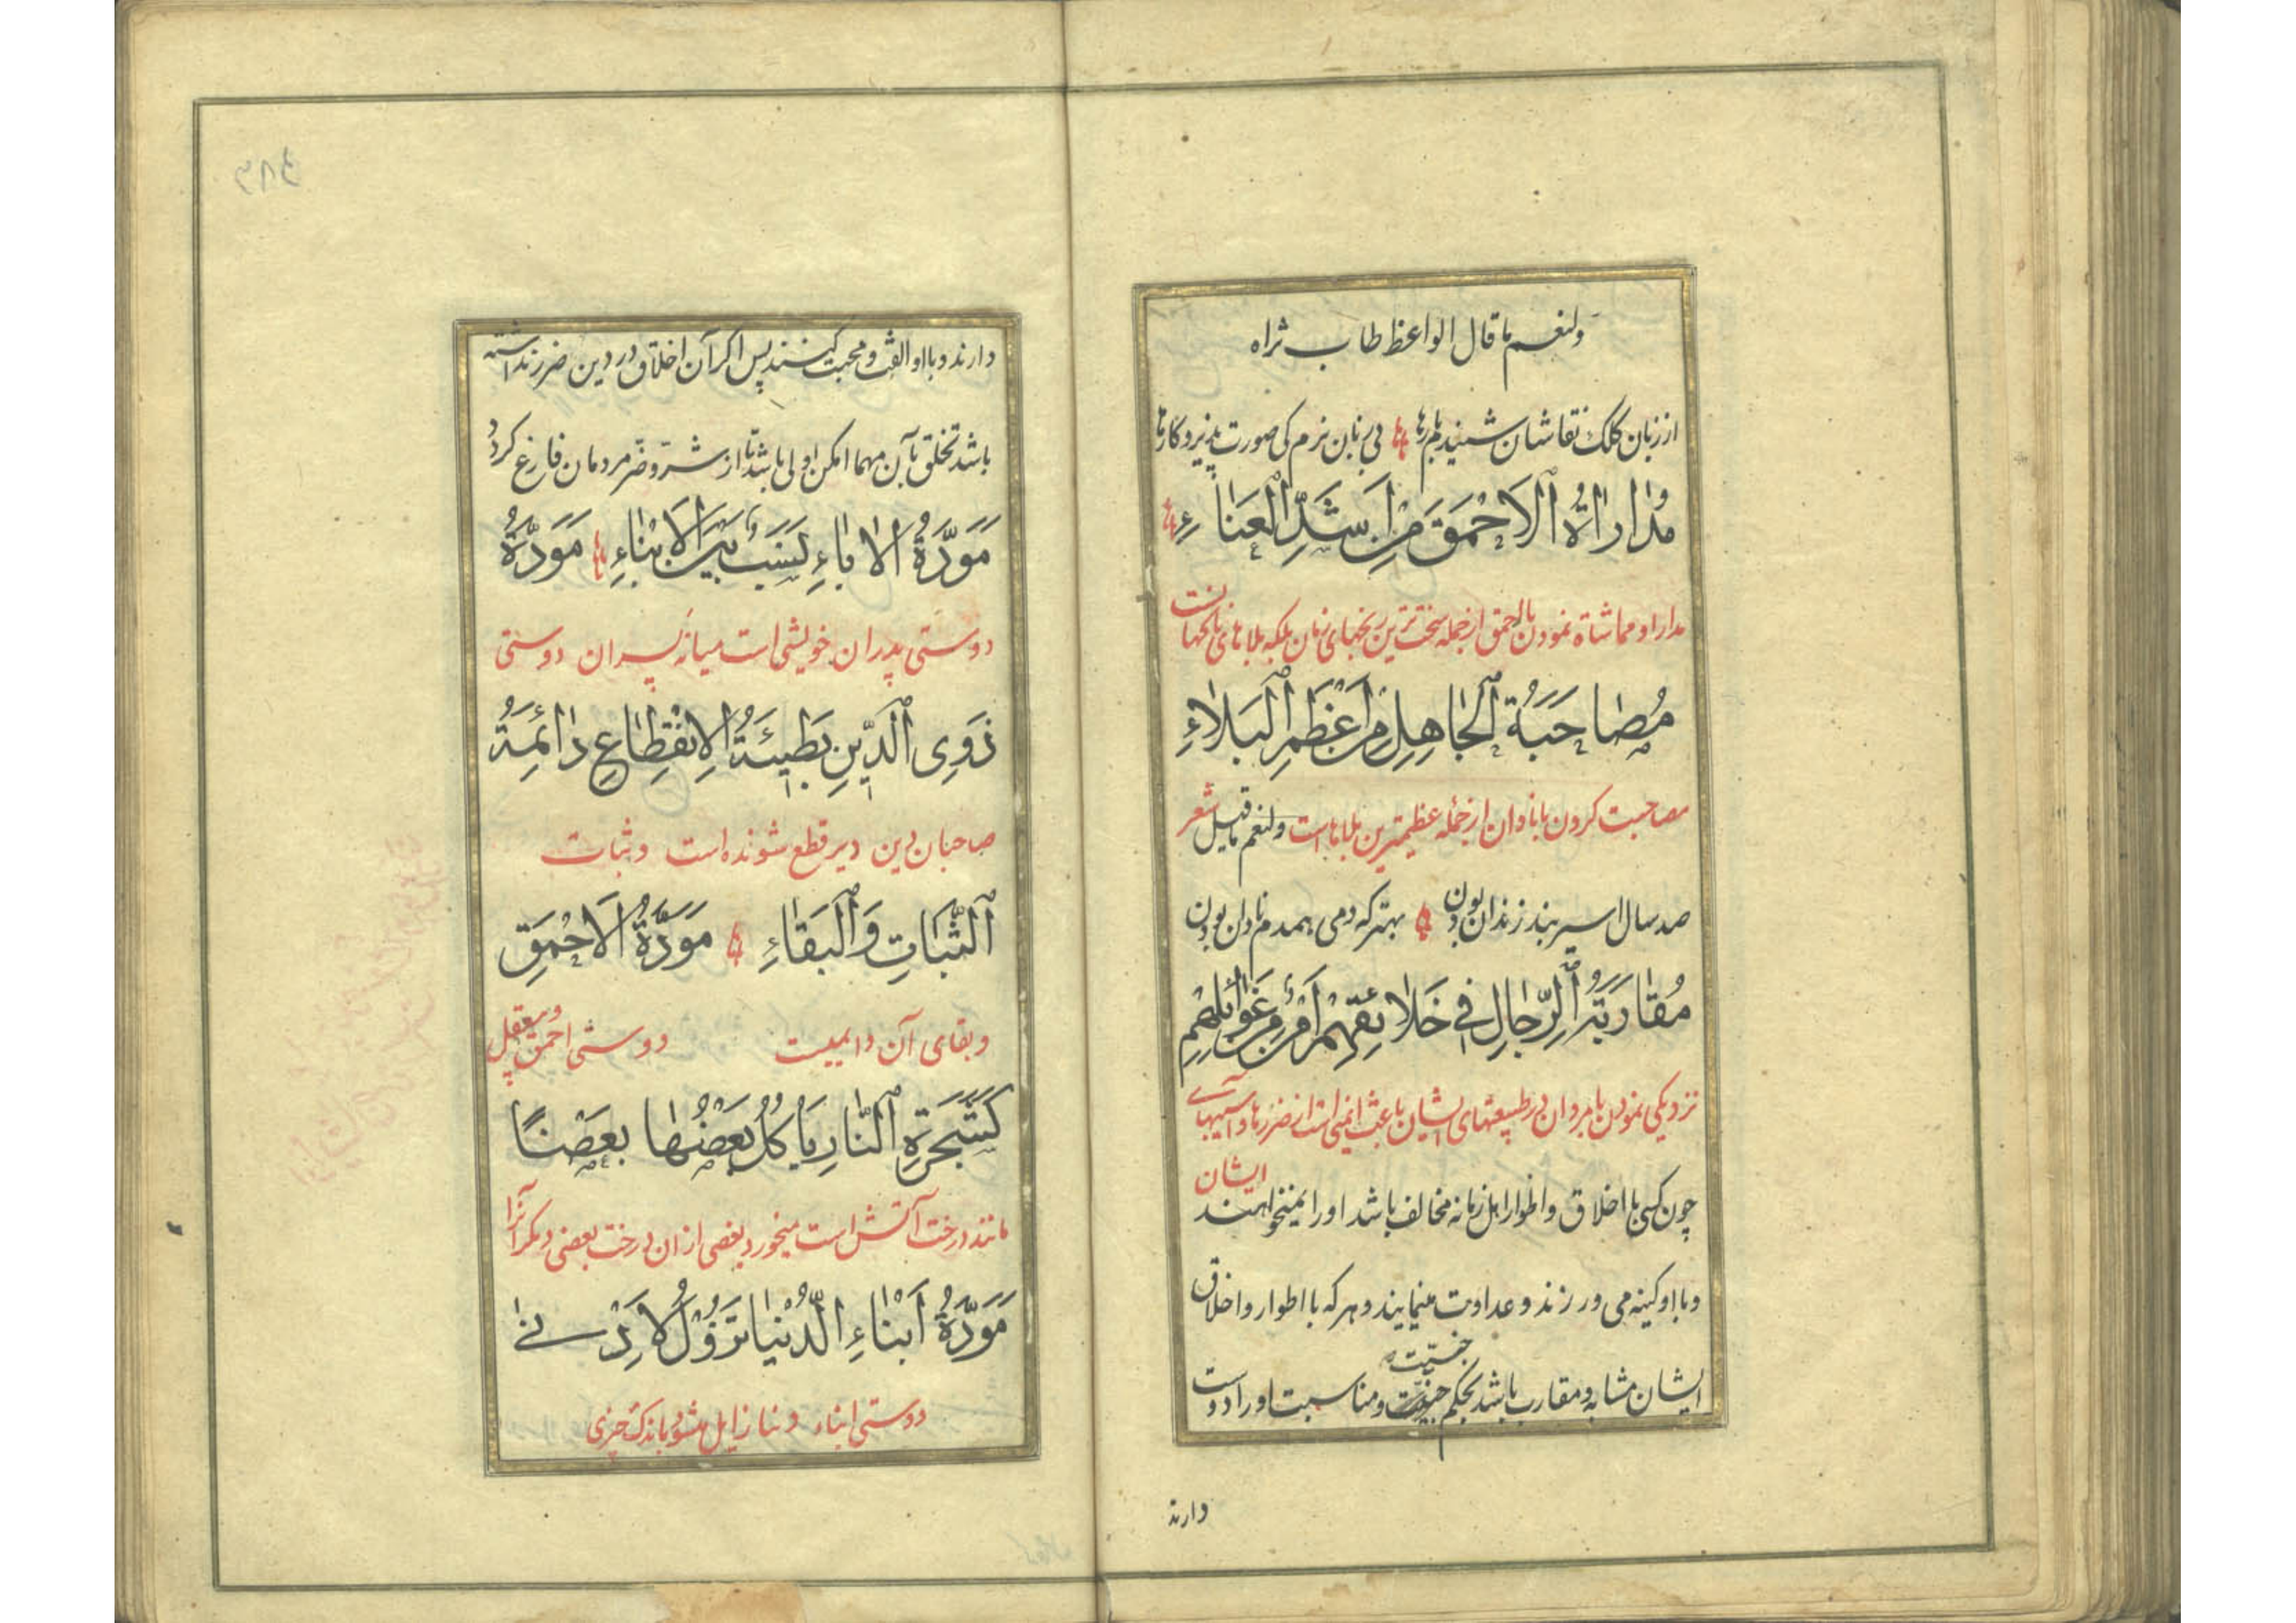 ولنعم ما قال الواعظ طاب ثراه
از زبان کلک نقاشان شنیدم بارها بی زبان نرم کی صورت پذیرد کارها
مُدٰارٰاةُ الْاَحْمَقِ مِنْ اَشَدِّ الْعَنٰاءِ
مدارا و مماشاة نمودن با احمق از جمله سخت ترین رنجهای زمان بلکه بلاهای
مُصٰاحَبَةُ الْجٰاهِلِ مِنْ اَعْظَمِ الْبَلٰاءِ
مصاحبت کردن با نادان از جمله عظیمترین بلاها است ولنعم ما قیل شعر
صد سال اسیر بند زندان بودن بهتر که دمی همدم نادان بودن
مُقٰارَبَةُ الرِّجٰالِ فِي خَلٰائِقِهِمْ اَمْنٌ مِنْ غَوٰائِلِهِمْ
نزدیکی نمودن با مردان در طبیعتهای ایشان باعث ایمنی است از ضررها و آسیبهای
ایشان
چون کسی با اخلاق و اطوار اهل زمانه مخالف باشد او را نمیخواهند
و با او کینه می ورزند و عداوت مینمایند و هر که با اطوار و اخلاق
جنسیّت
ایشان مشابه و مقارب باشد بحکم و مناسبت او را دوست
دارند
دارند و با او الفت و محبت کنند پس اگر آن اخلاق در دین ضرر نداشته
باشد تخلق بآن مهما امکن اولی باشد تا از شر و ضر مردمان فارغ گردد
مَوَدَّةُ الْاٰبٰاءِ نَسَبٌ بَيْنَ الْاَبْنٰاءِ مَوَدَّةُ
دوستی پدران خویشی است میانه پسران دوستی
ذَوِي الدِّينِ بَطِيئَةُ الْاِنْقِطٰاعِ دٰائِمَةُ
صاحبان دین دیر قطع شونده است و ثبات
الثَّبٰاتِ وَالْبَقٰاءِ مَوَدَّةُ الْاَحْمَقِ
و بقای آن دایمیست دوستی احمق و بیعقل
كَشَجَرَةِ النّٰارِ يَأْكُلُ بَعْضُهٰا بَعْضًا
مانند درخت آتش است میخورد بعضی از ان درخت بعضی دیگر آنرا
مَوَدَّةُ اَبْنٰاءِ الدُّنْيٰا تَزُولُ لِاَدْنٰى
دوستی ابناء دنیا زایل میشود باندک چیزی